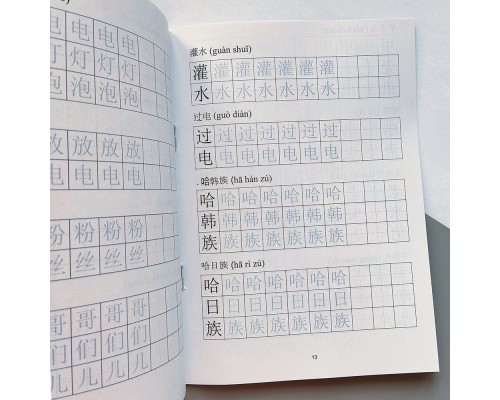 电 电 电 电
灯 灯 灯 灯
泡 泡 泡 泡
放 放 放 放
电 电 电 电
粉 粉 粉 粉
丝 丝 丝 丝
哥 哥 哥 哥
们 们 们 们
儿 儿 儿 儿
灌水 (guàn shuǐ)
灌 灌 灌 灌 灌 灌 灌
水 水 水 水 水 水 水
过电 (guò diàn)
过 过 过 过 过 过 过
电 电 电 电 电 电 电
. 哈韩族 (hā hán zú)
哈 哈 哈 哈 哈 哈 哈
韩 韩 韩 韩 韩 韩 韩
族 族 族 族 族 族 族
哈日族 (hā rì zú)
哈 哈 哈 哈 哈 哈 哈
日 日 日 日 日 日 日
族 族 族 族 族 族 族
13